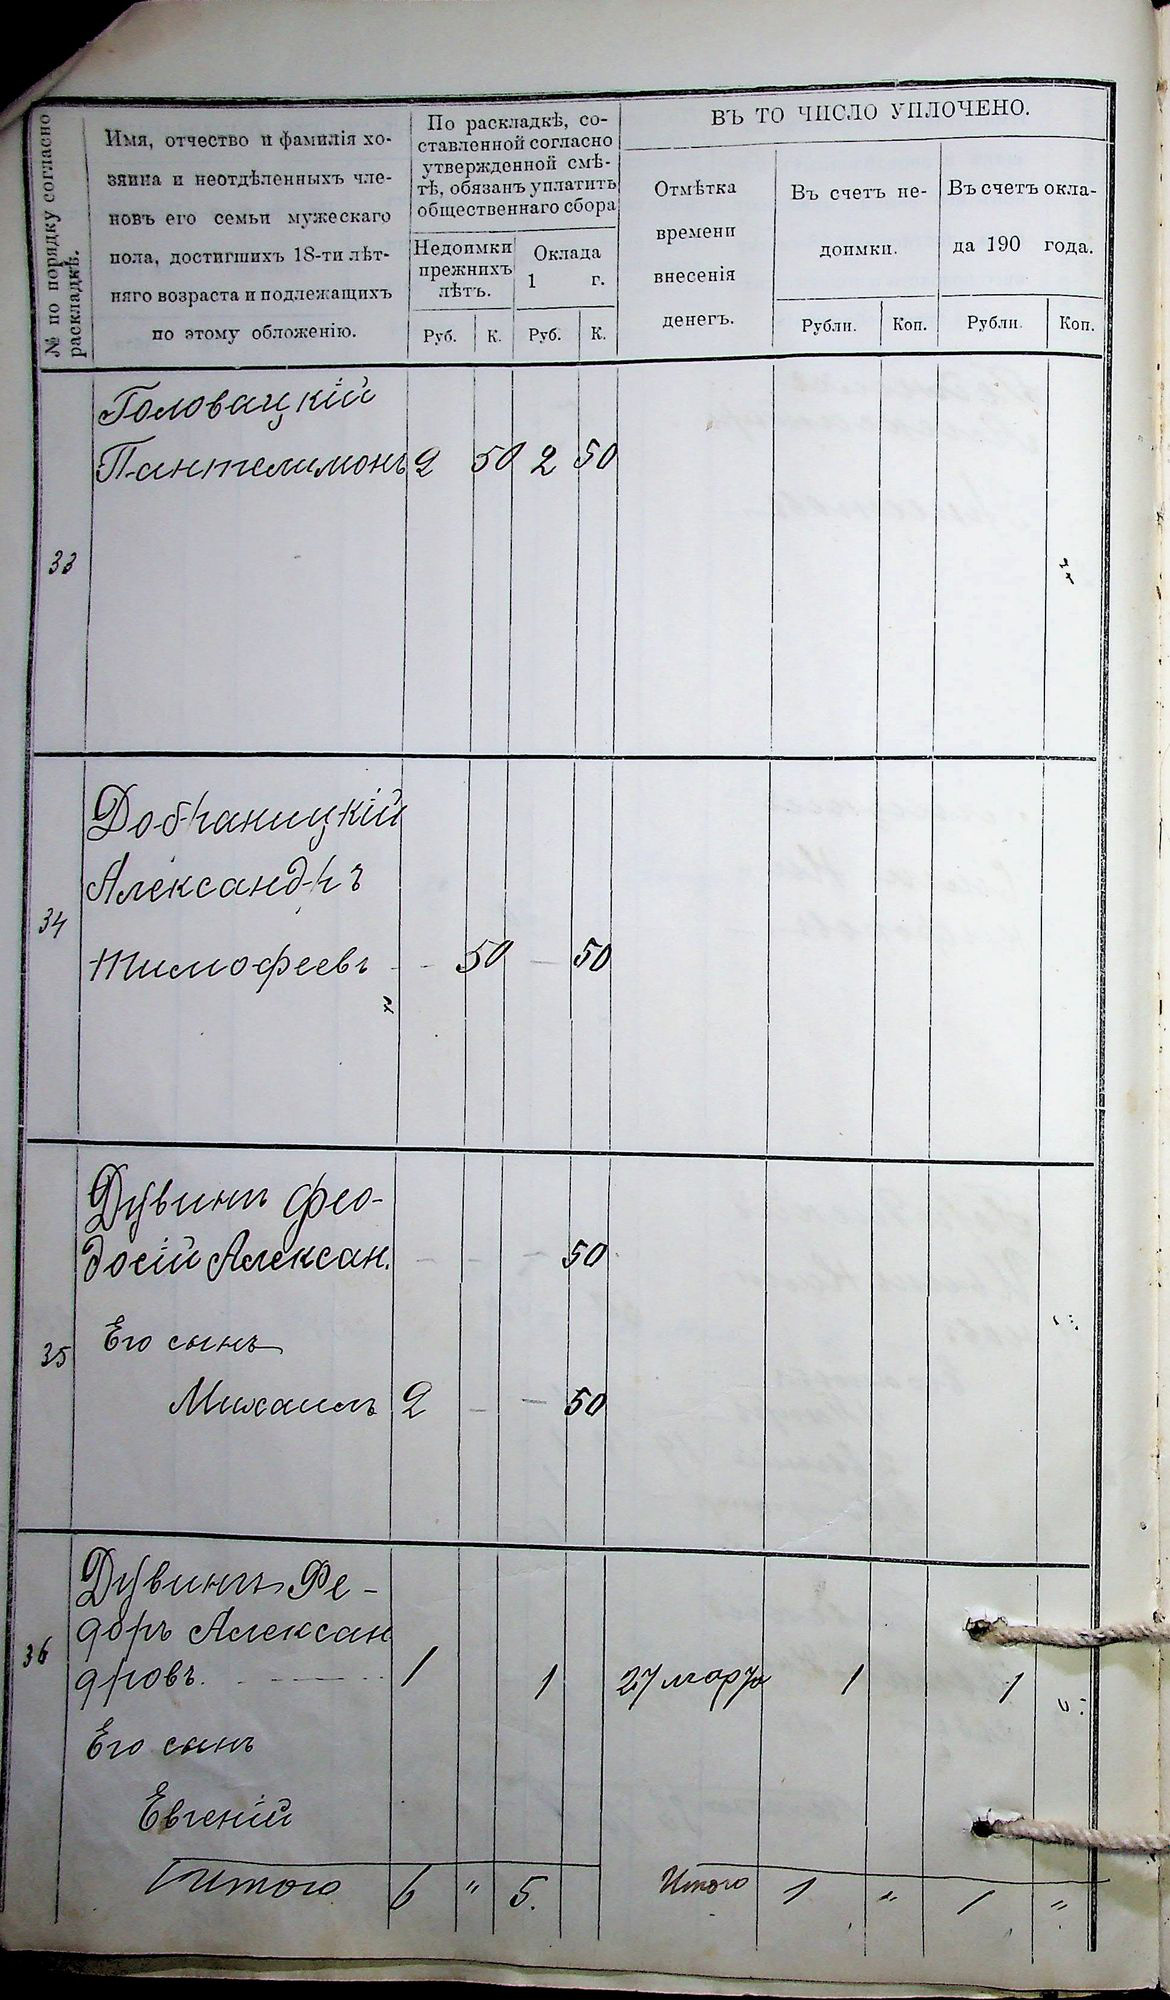 № по порядку согласно
раскладкѣ.
Имя, отчество и фамилія хо-
зяина и неотдѣленныхъ чле-
новъ его семьи мужескаго
пола, достигшихъ 18-ти лѣт-
няго возраста и подлежащихъ
по этому обложенію.
По раскладкѣ, со-
ставленной согласно
утвержденной смѣ-
тѣ, обязанъ уплатить
общественнаго сбора
Недоимки
прежнихъ
лѣтъ.
Оклада
1 г.
Руб. К. Руб. К.
ВЪ ТО ЧИСЛО УПЛОЧЕНО.
Отмѣтка
времени
внесенія
денегъ.
Въ счетъ не-
доимки.
Въ счетъ окла-
да 190 года.
Рубли. Коп. Рубли. Коп.
Головацкій
Пантелимонъ 2 50 2 50
33
Добраницкій
Александръ
34
Тимофеевъ - - 50 — 50
Дувинъ Фео-
досій Алексан. - - - 50
Его сынъ
35
Михаилъ 2 - - 50
Дувинъ Фе-
доръ Алексан
36
дровъ. 1 1 27 марта 1 1
Его сынъ
Евгеній
Итого 6 " 5. Итого 1 " 1 "